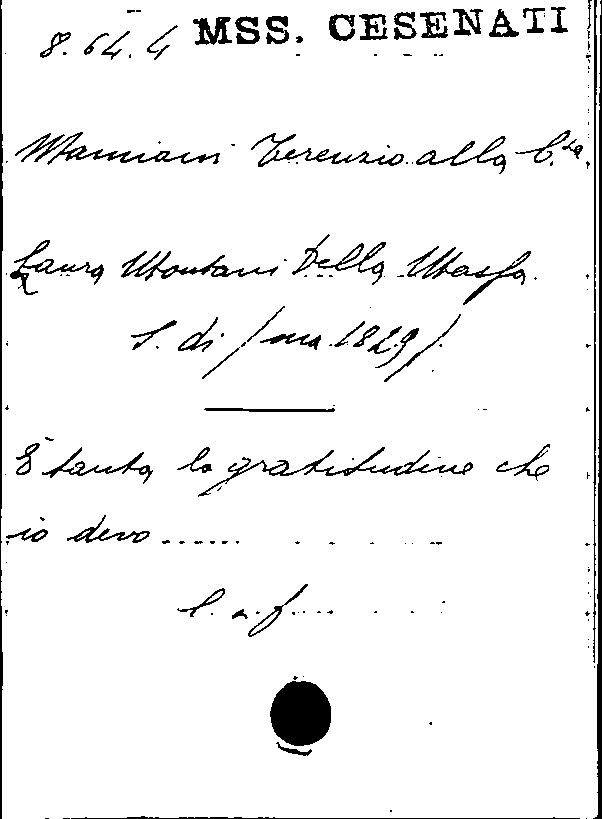 8.64.4 MSS. CESENATI
Mamiani Terenzio alla C.sa
Laura Montani Della Massa
S. di /ma 1829/
È tanta la gratitudine che
io devo......
l. a. f....